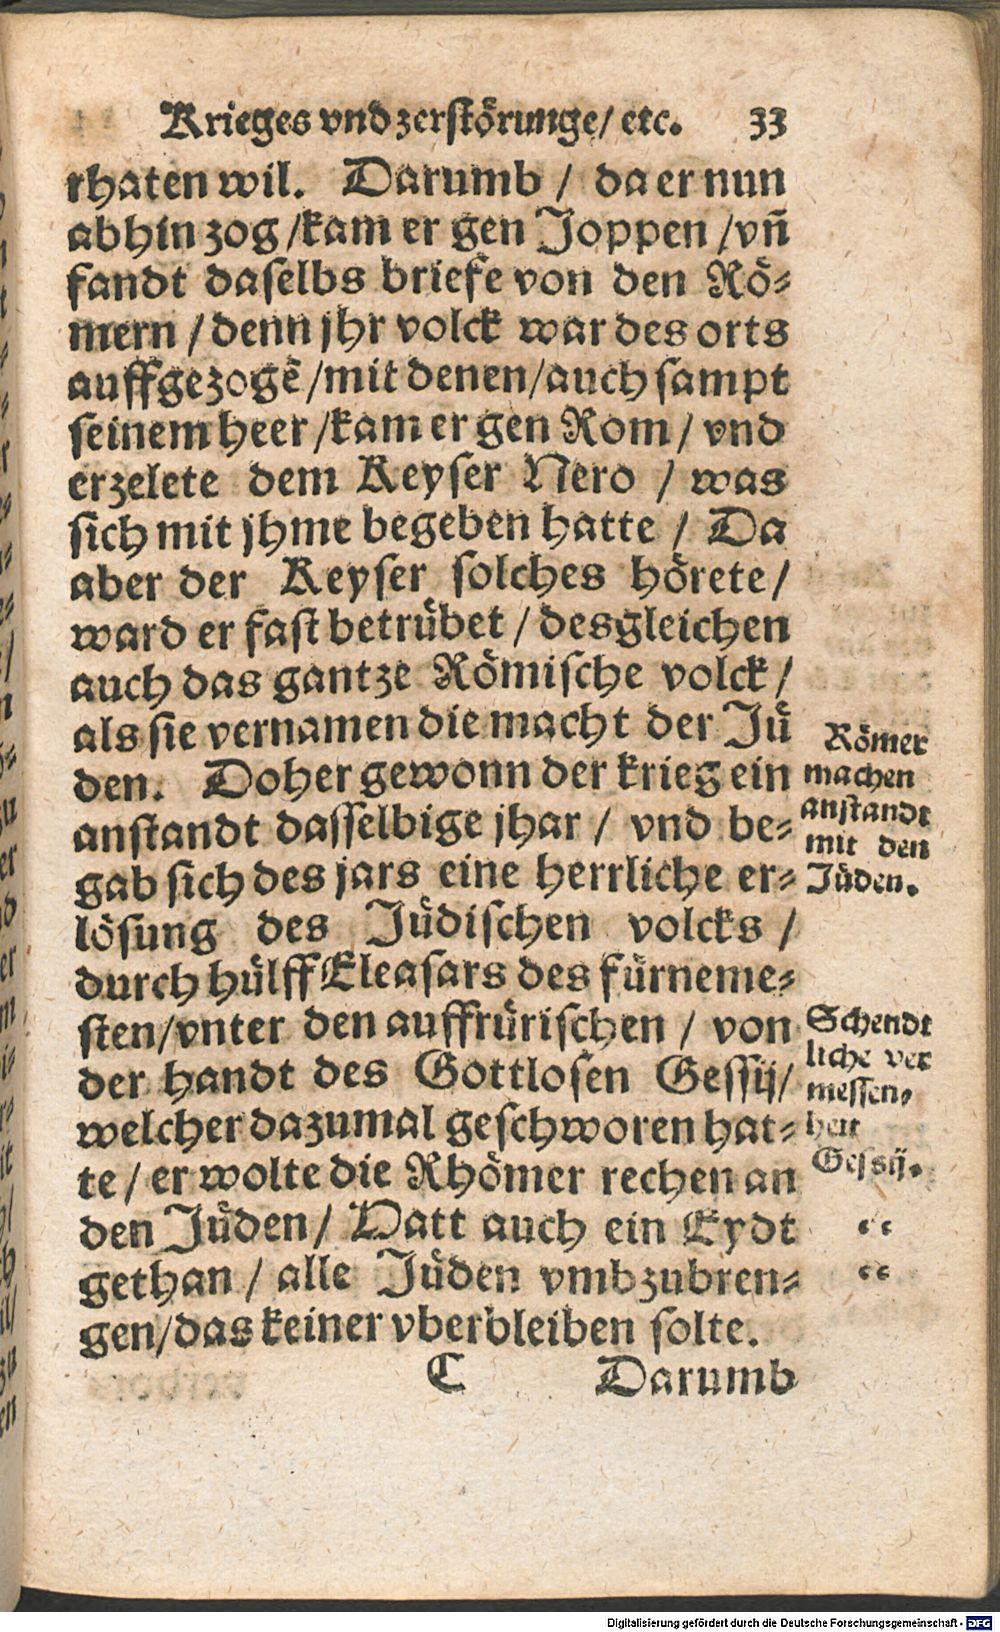 Krieges vnd zerstörunge/ etc. 33
rhaten wil. Darumb / da er nun
abhin zog /kam er gen Joppen /vñ
fandt daselbs briefe von den Rö⸗
mern / denn jhr volck war des orts
auffgezogẽ /mit denen/auch sampt
seinem heer /kam er gen Rom / vnd
erzelete dem Keyser Nero / was
sich mit jhme begeben hatte / Da
aber der Keyser solches hörete/
ward er fast betrübet / desgleichen
auch das gantze Römische volck /
als sie vernamen die macht der Jü
den. Doher gewonn der krieg ein
anstandt dasselbige jhar / vnd be⸗
gab sich des jars eine herrliche er⸗
lösung des Jüdischen volcks /
durch hülff Eleasars des fürneme⸗
sten/vnter den auffrürischen / von
der handt des Gottlosen Gessij/
welcher dazumal geschworen hat⸗
te / er wolte die Rhömer rechen an
den Jüden / Hatt auch ein Eydt
gethan / alle Jüden vmbzubren⸗
gen/das keiner vberbleiben solte.
C Darumb
Römer
machen
anstandt
mit den
Jüden.
Schendt
liche ver
messen⸗
heit
Gessij.
“
“
Digitalisierung gefördert durch die Deutsche Forschungsgemeinschaft - DFG